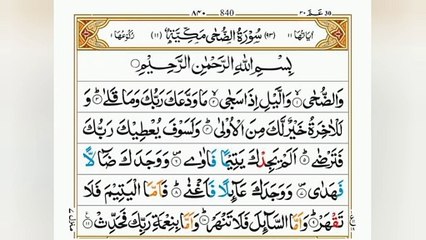 ٨٤٠ 840 عـم ٣٠
اٰيَاتُهَا ١١ (٩٣) سُوْرَةُ الضُّحٰى مَكِّيَّةٌ (١١) رُكُوْعُهَا ١
بِسْمِ اللّٰهِ الرَّحْمٰنِ الرَّحِيْمِ
وَالضُّحٰى ۙ وَالَّيْلِ اِذَا سَجٰى ۙ مَا وَدَّعَكَ رَبُّكَ وَمَا قَلٰى ؕ وَ
لَلْاٰخِرَةُ خَيْرٌ لَّكَ مِنَ الْاُوْلٰى ؕ وَلَسَوْفَ يُعْطِيْكَ رَبُّكَ
فَتَرْضٰى ؕ اَلَمْ يَجِدْكَ يَتِيْمًا فَاٰوٰى ۪ وَوَجَدَكَ ضَآلًّا
فَهَدٰى ۪ وَوَجَدَكَ عَآئِلًا فَاَغْنٰى ؕ فَاَمَّا الْيَتِيْمَ فَلَا
تَقْهَرْ ؕ وَاَمَّا السَّآئِلَ فَلَا تَنْهَرْ ؕ وَاَمَّا بِنِعْمَةِ رَبِّكَ فَحَدِّثْ ۠